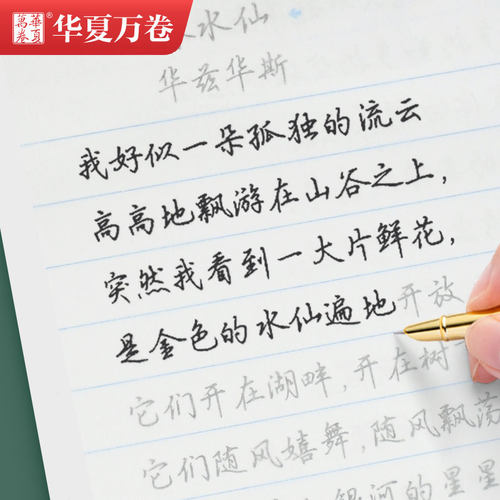 華夏萬卷® 华夏万卷
水仙
华兹华斯
我好似一朵孤独的流云
高高地飘游在山谷之上，
突然我看到一大片鲜花，
是金色的水仙遍地开放
它们开在湖畔，开在树
它们随风嬉舞，随风飘荡
银河的星星